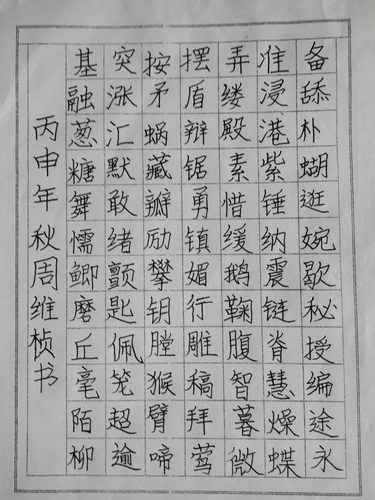 备舔朴蝴逛婉歇秘授编途永
准浸港紫锤纳震链脊慧燥蝶
弄缕殿素惜缓鹅鞠腹智暮微
摆盾辩锯勇镇媚行雕稿拜莺
按矛蜗藏瓣励攀钥膛猴臂啼
突涨汇默敢绪颤匙佩笼超逾
基融葱糖舞懦鲫磨丘毫陌柳
丙申年秋周维桢书